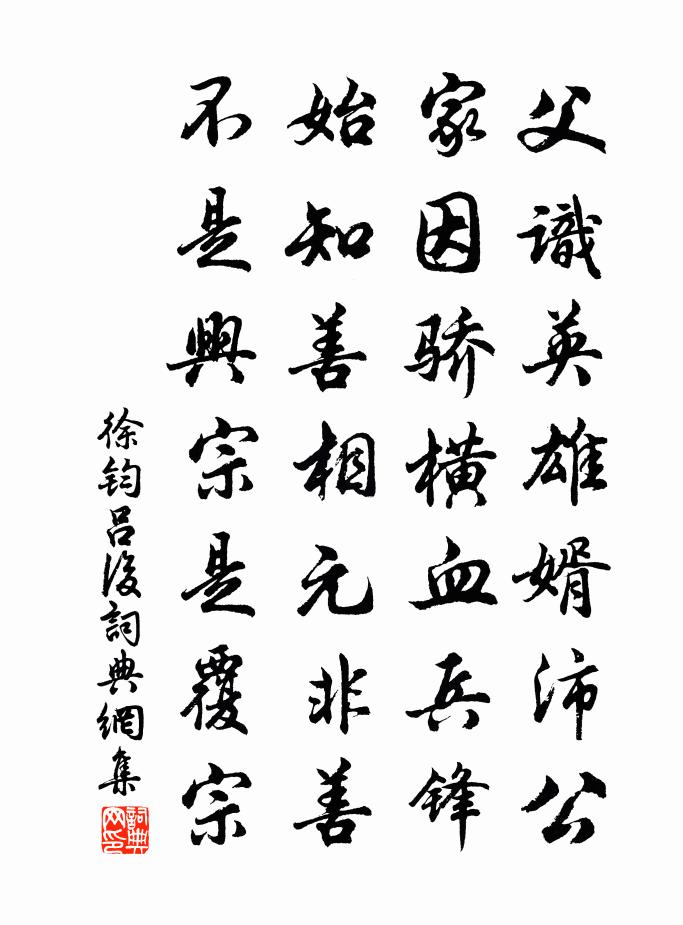 父識英雄婿沛公
家因骄横血兵锋
始知善相元非善
不是興宗是覆宗
徐钧吕後詞典網集
詞典网印